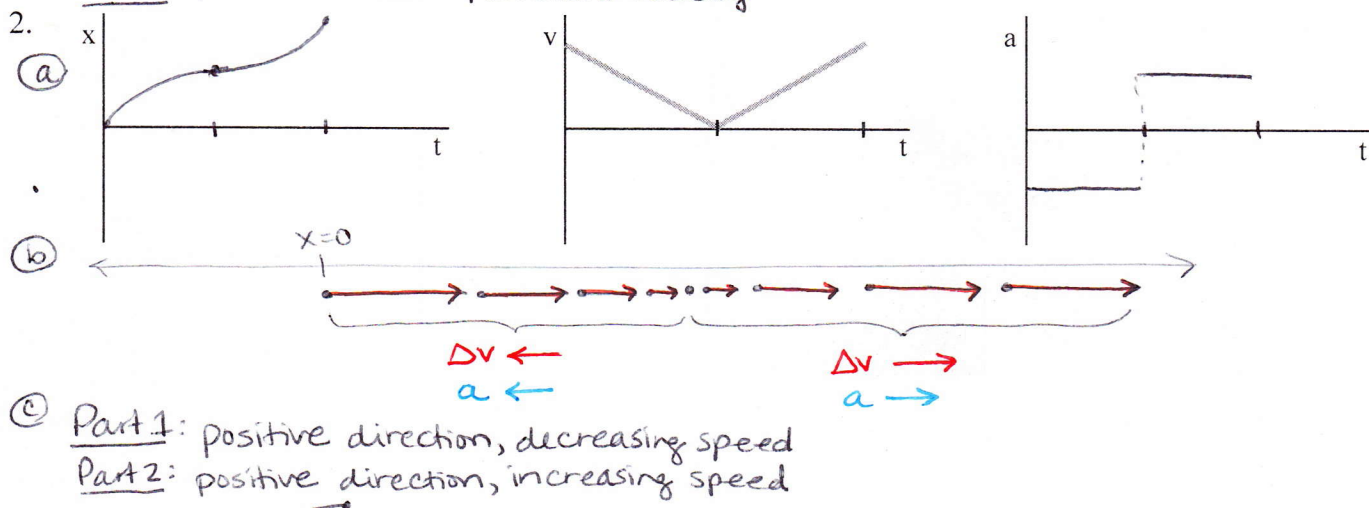 2.
x
v
a
(a)
t
t
t
x=0
(b)
Δv ← Δv →
a ← a →
(c) Part 1: positive direction, decreasing speed
Part 2: positive direction, increasing speed